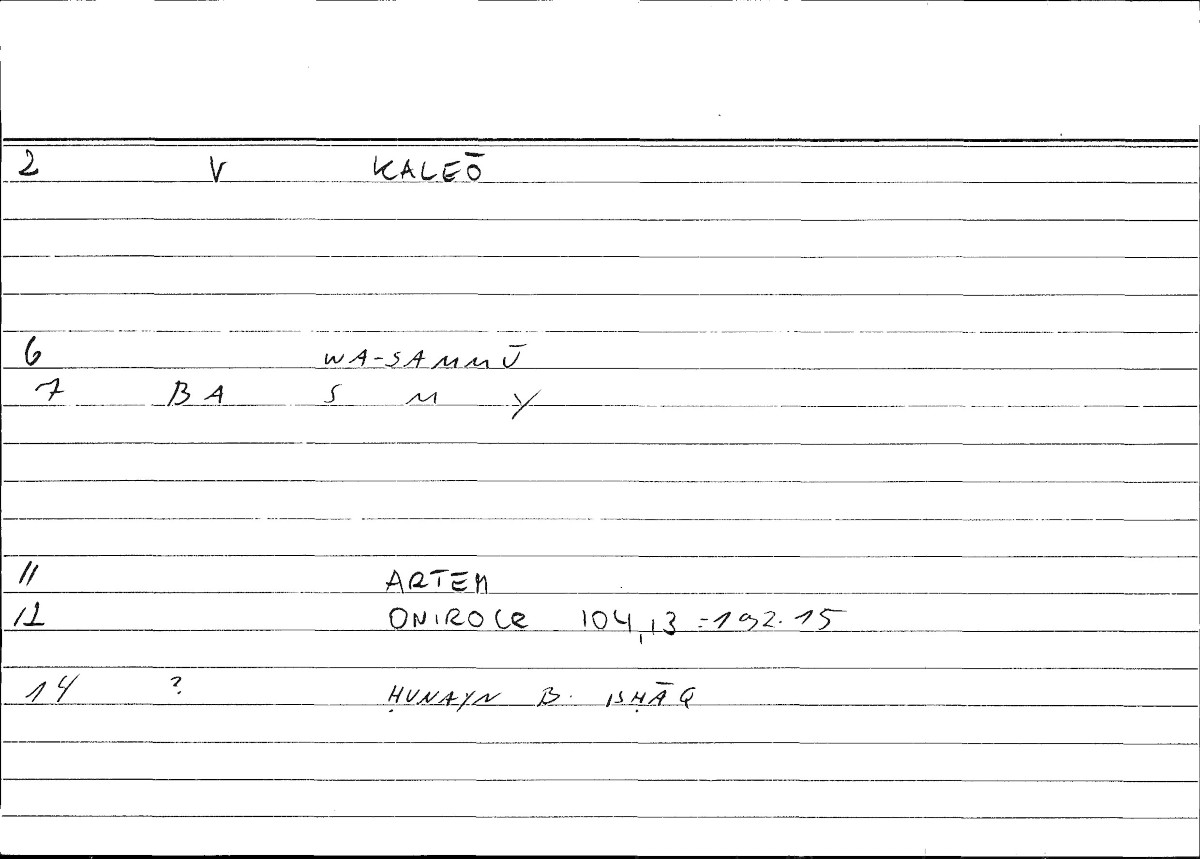 2 V KALEŌ
6 WA-SAMMŪ
7 BA S M Y
11 ARTEM
12 ONIROCR 104,13 = 192.15
14 ? ḤUNAYN B. ISḤĀQ